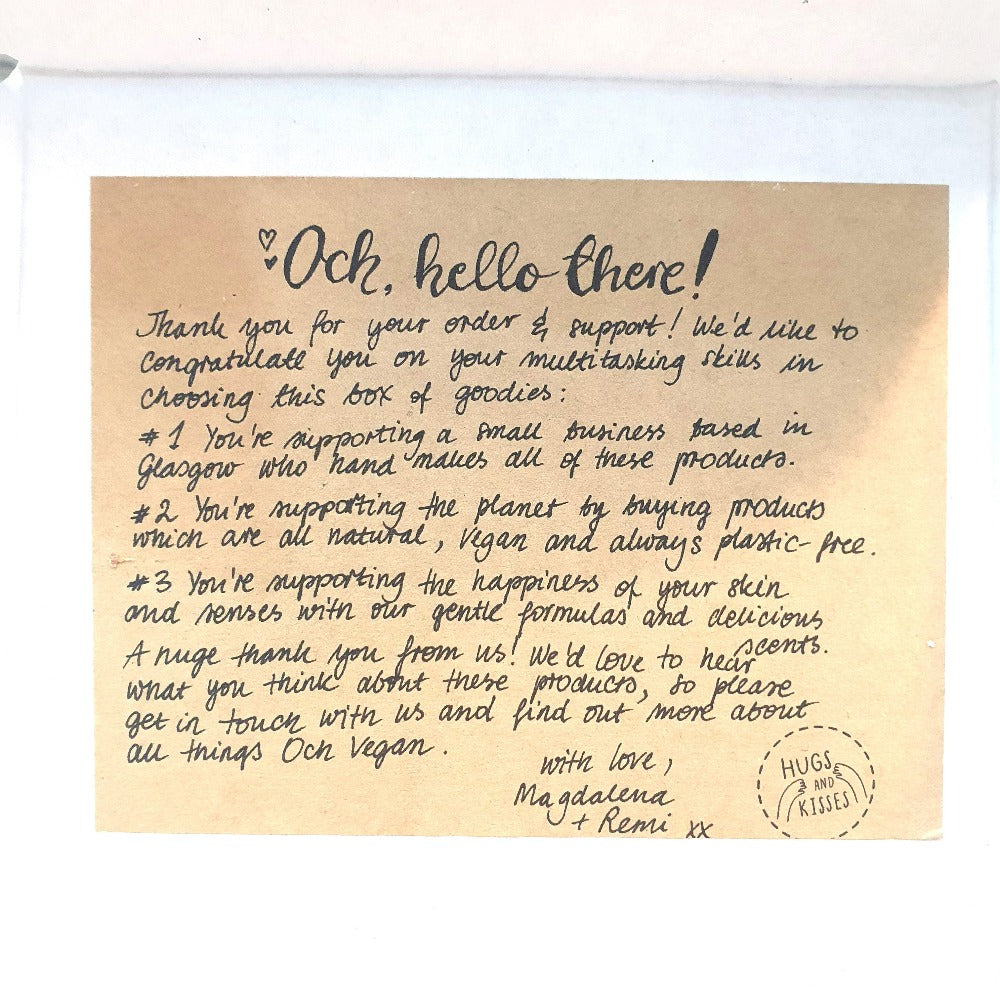 Och, hello there!
Thank you for your order & support! We'd like to
congratulate you on your multitasking skills in
choosing this box of goodies:
#1 You're supporting a small business based in
Glasgow who hand makes all of these products.
#2 You're supporting the planet by buying products
which are all natural, vegan and always plastic-free.
#3 You're supporting the happiness of your skin
and senses with our gentle formulas and delicious
scents.
A huge thank you from us! We'd love to hear
what you think about these products, so please
get in touch with us and find out more about
all things Och Vegan.
with love,
Magdalena
+ Remi xx
HUGS
AND
KISSES